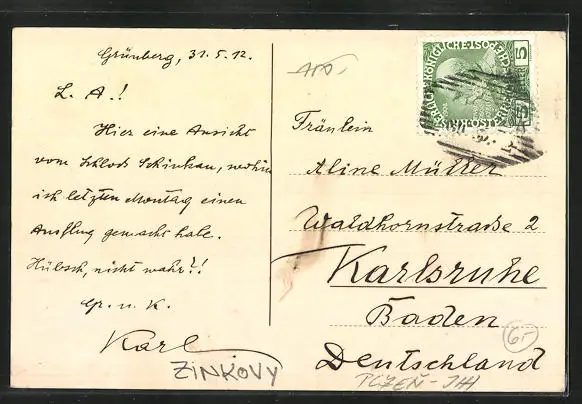 Grünberg, 31.5.12.
L. A.!
Hier eine Ansicht
vom Schloss Schinkau, wohin
ich letzten Montag einen
Ausflug gemacht habe.
Hübsch, nicht wahr?!
Gr. u. K.
Karl
ZINKOVY
5
Fräulein
Aline Müller
Waldhornstraße 2
Karlsruhe
Baden
Deutschland
65
PLZEŇ-JIH